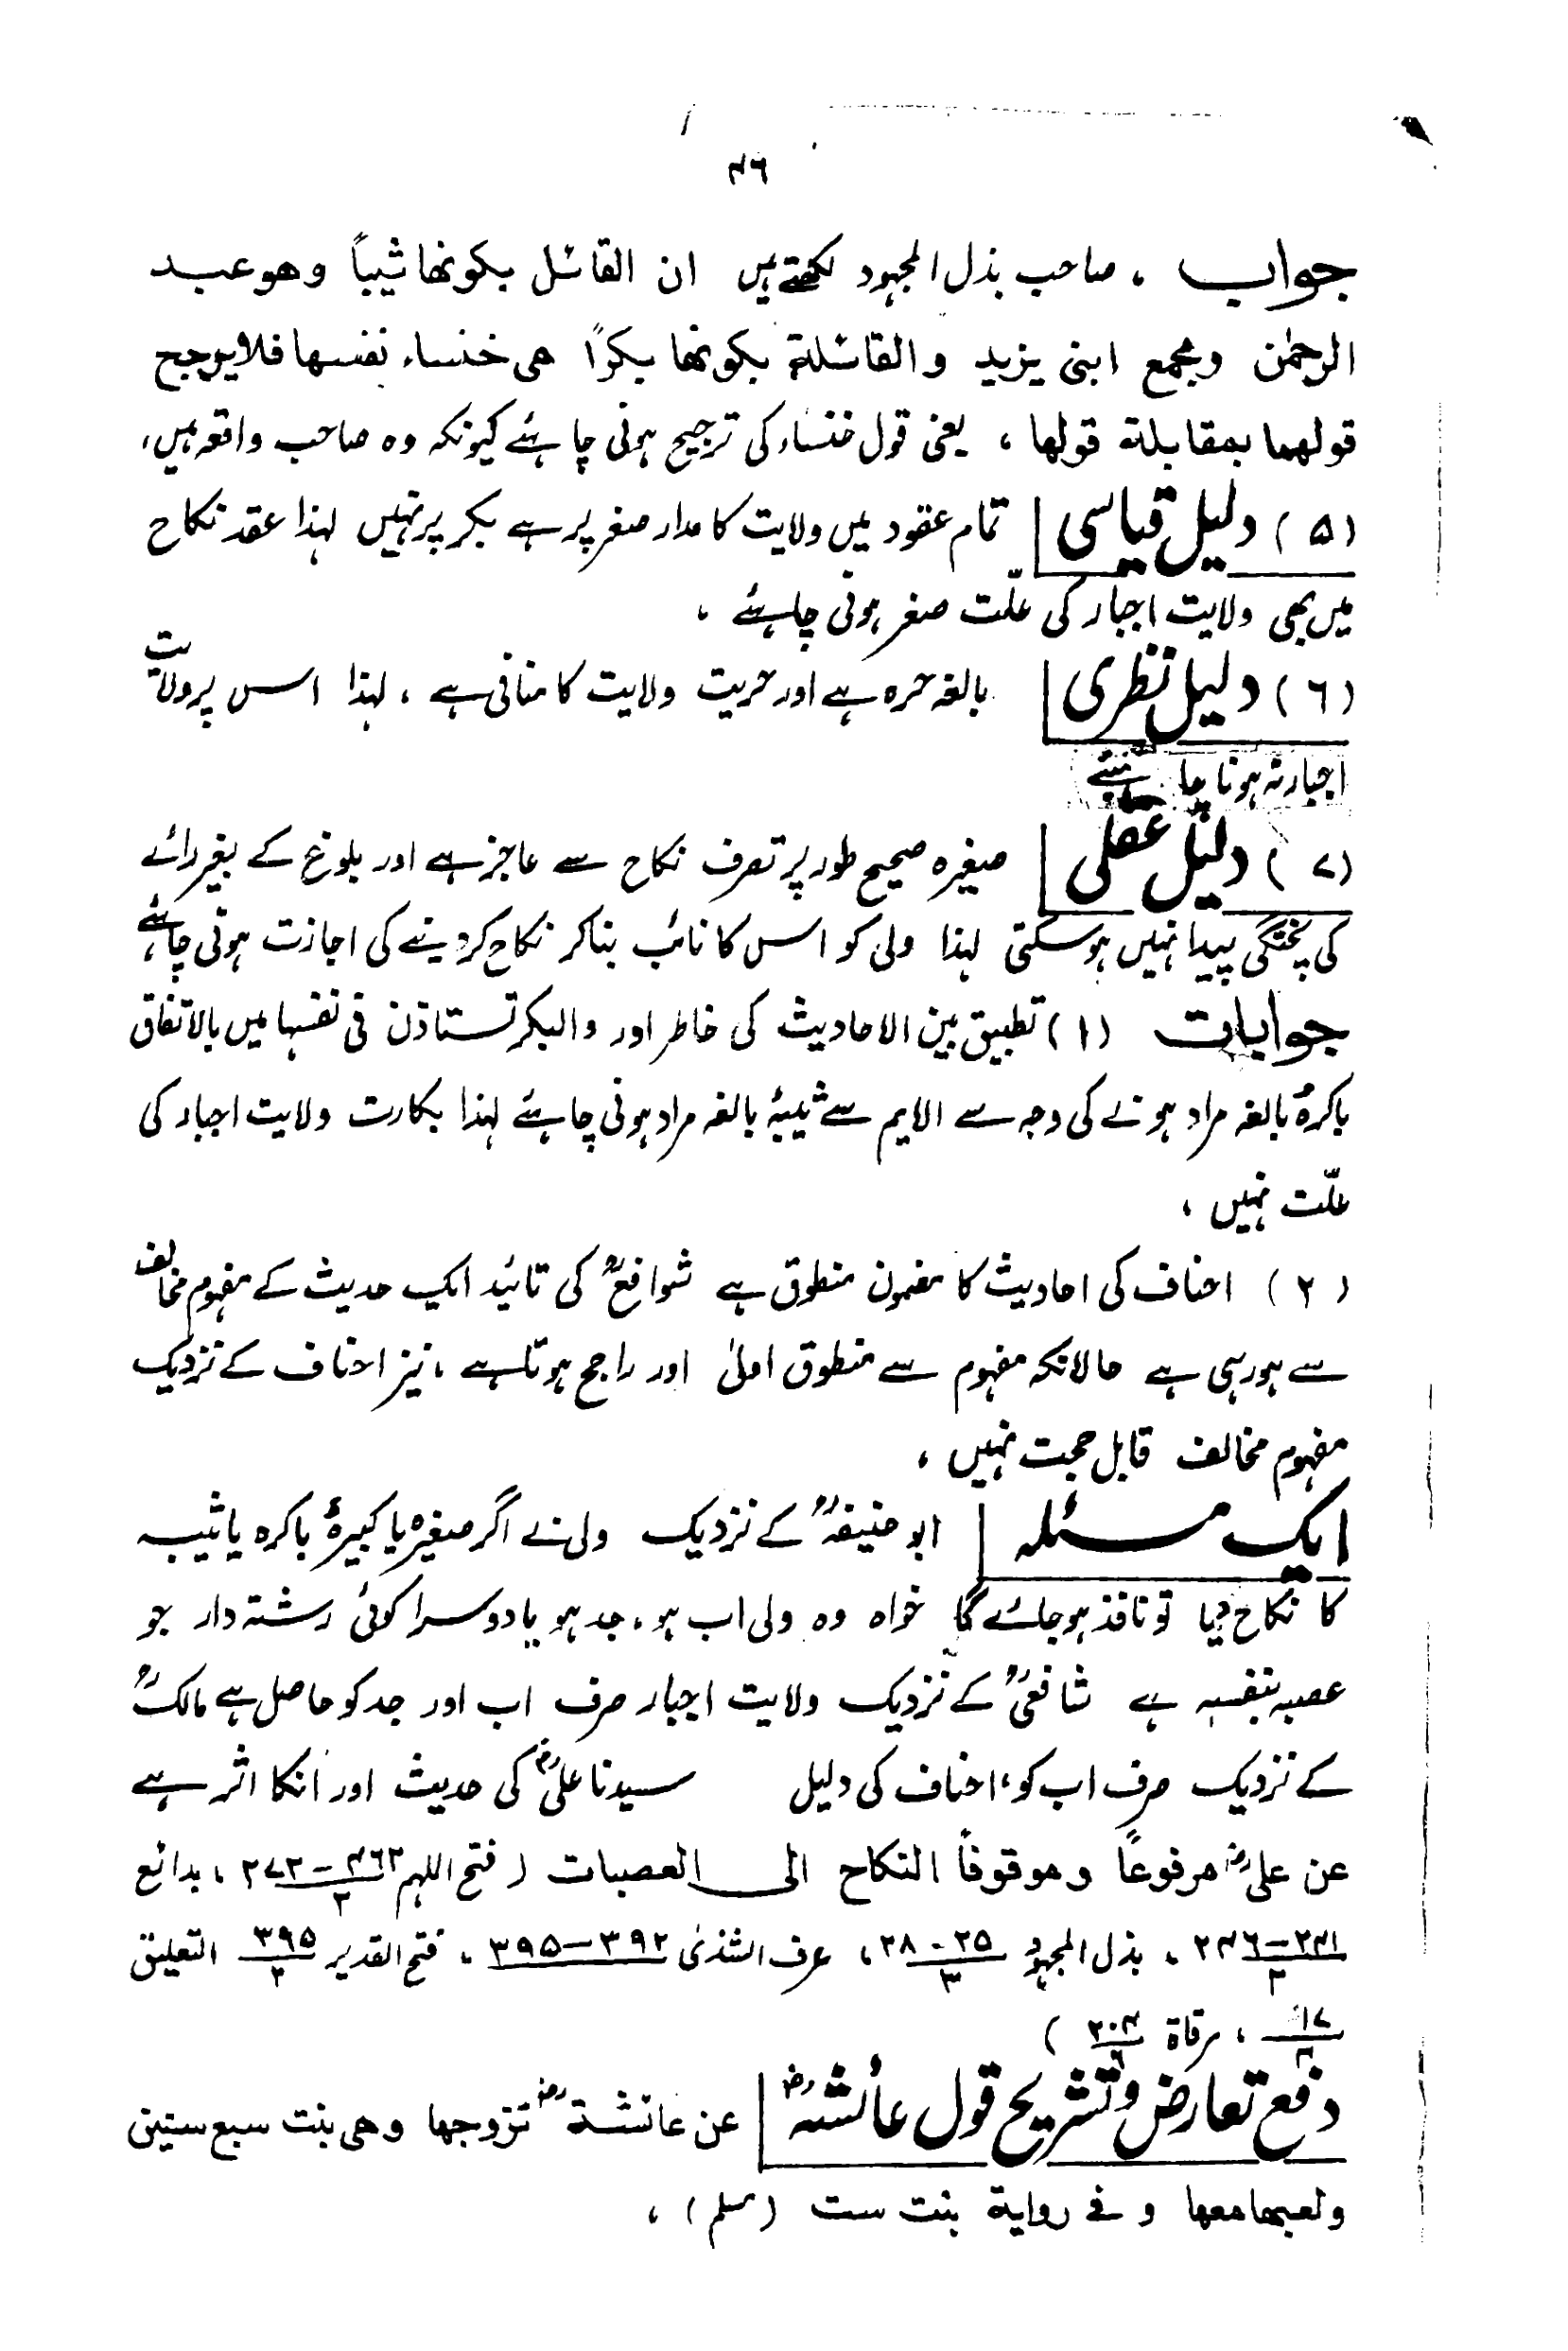 ۴۶
جواب ، صاحب بذل المجہود لکھتے ہیں ان القائل بکونھا ثیباً وھو عبد
الرحمٰن ومجمع ابنی یزید والقائلة بکونھا بکرًا ھی خنساء نفسھا فلا یرجح
قولھما بمقابلة قولھا ، یعنی قول خنساء کی ترجیح ہونی چاہئے کیونکہ وہ صاحب واقعہ ہیں،
(۵) دلیل قیاسی | تمام عقود میں ولایت کا مدار صغر پر ہے بکر پر نہیں لہذا عقد نکاح
میں بھی ولایت اجبار کی علّت صغر ہونی چاہئے ،
(۶) دلیل نظری | بالغہ حرہ ہے اور حریت ولایت کا منافی ہے ، لہذا اس پر ولایت
اجبار نہ ہونا چاہئیے
(۷) دلیل عقلی | صغیرہ صحیح طور پر تصرف نکاح سے عاجز ہے اور بلوغ کے بغیر رائے
کی پختگی پیدا نہیں ہو سکتی لہذا ولی کو اس کا نائب بنا کر نکاح کر دینے کی اجازت ہونی چاہئے ،
جوابات (۱) تطبیق بین الاحادیث کی خاطر اور والبکر تستاذن فی نفسہا میں بالاتفاق
باکرہٴ بالغہ مراد ہونے کی وجہ سے الایم سے ثیبہٴ بالغہ مراد ہونی چاہئے لہذا بکارت ولایت اجبار کی
علّت نہیں ،
(۲) احناف کی احادیث کا مضمون منطوق ہے شوافعؒ کی تائید ایک حدیث کے مفہوم مخالف
سے ہو رہی ہے حالانکہ مفہوم سے منطوق اولیٰ اور راجح ہوتا ہے ، نیز احناف کے نزدیک
مفہوم مخالف قابل حجت نہیں ،
ایک مسئلہ | ابو حنیفہؒ کے نزدیک ولی نے اگر صغیرہ یا کبیرہٴ باکرہ یا ثیبہ
کا نکاح دیا تو نافذ ہو جائے گا خواہ وہ ولی اب ہو ، جد ہو یا دوسرا کوئی رشتہ دار جو
عصبہ بنفسہ ہے شافعیؒ کے نزدیک ولایت اجبار صرف اب اور جد کو حاصل ہے مالکؒ
کے نزدیک صرف اب کو ، احناف کی دلیل سیدنا علیؓ کی حدیث اور انکا اثر ہے
عن علیؓ مرفوعاً وموقوفاً النکاح الی العصبات ( فتح اللہم ۴۶۳-۴۷۳/۳ ، بدائع
۲۴۱-۲۴۶/۲ ، بذل المجہود ۲۵-۲۸/۳ ، عرف الشذی ۳۹۲-۳۹۵ ، فتح القدیر ۳۹۵/۲ التعلیق
۱۷/۴ ، مرقاة ۲۰۴/۶ )
دفع تعارض وتشریح قول عائشہؓ | عن عائشةؓ تزوجھا وھی بنت سبع سنین
ولعبھا معھا و فی روایة بنت ست (مسلم) ،